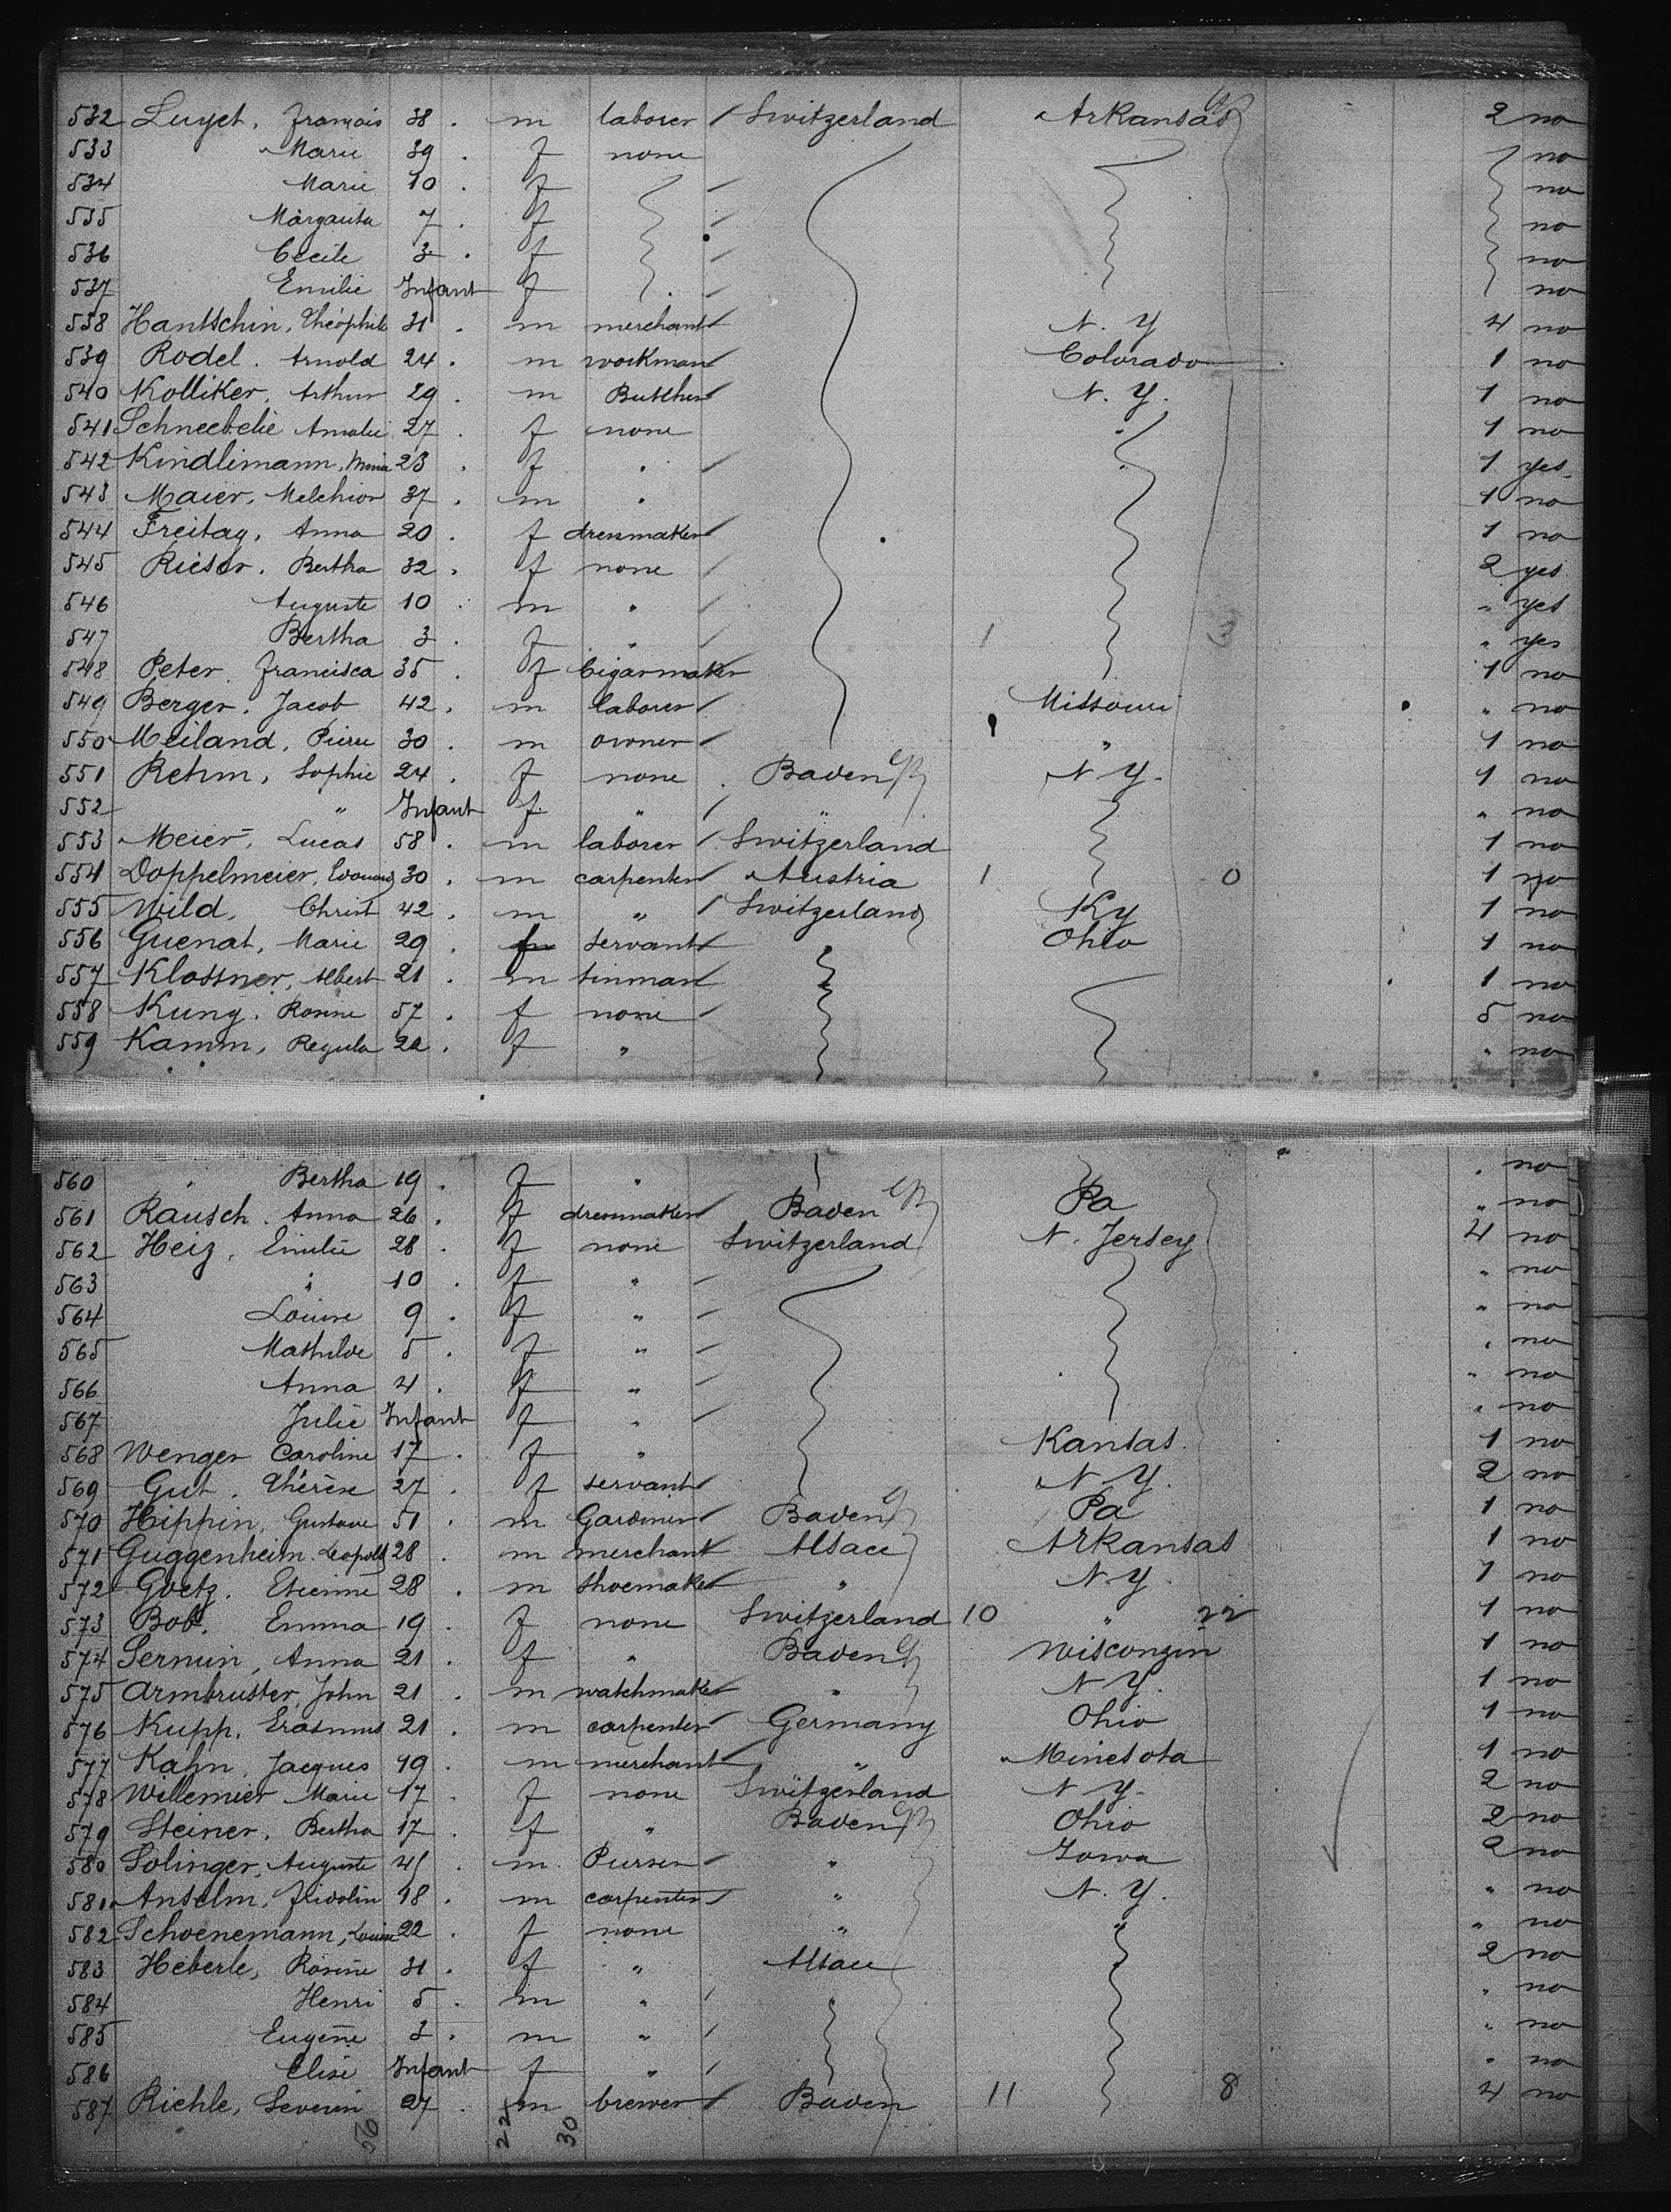 532 Luyet, François 38 . m laborer / Switzerland Arkansas 2 no
533 Marie 39 . f none no
534 Marie 10 . f no
535 7 . f no
536 Cecile 3 . f no
537 Emilie Infant f no
538 Hantschin, Théophile 31 . m merchant N. Y 4 no
539 Rodel. Arnold 24 . m workman Colorado 1 no
540 Kolliker, Arthur 29 . m Butcher N. Y. 1 no
541 Schneebelie Amalie 27 . f none " 1 no
542 Kindlimann, Mina 23 . f " " 1 yes
543 Maier, Melchior 37 . m " 1 no
544 Freitag, Anna 20 . f dressmaker 1 no
545 Rieser. Bertha 32 . f none 2 yes
546 Auguste 10 . m " " yes
547 Bertha 3 . f " 1 3 " yes
548 Peter. Francisca 35 . f Cigarmaker 1 no
549 Berger. Jacob 42 . m laborer Missouri " no
550 Meiland, Pierre 30 . m owner " 1 no
551 Rehm, Sophie 24 . f none Baden N Y. 1 no
552 " Infant f " " " no
553 Meier, Lucas 58 . m laborer / Switzerland 1 no
554 Doppelmeier, Edouard 30 . m carpenter Austria 1 0 1 no
555 Wild, Christ 42 . m " / Switzerland Ky 1 no
556 Guenat, Marie 29 . f servant " Ohio 1 no
557 Klossner, Albert 21 . m tinman 1 no
558 Kung. Rosine 57 . f none 5 no
559 Kamm, Regula 22 . f " " no
560 " Bertha 19 . f " " no
561 Rausch. Anna 26 . f dressmaker Baden Pa " no
562 Heiz. Emilie 28 . f none Switzerland N. Jersey 4 no
563 " 10 . f " " no
564 Louise 9 . f " " no
565 Mathilde 5 . f " " no
566 Anna 4 . f " " no
567 Julie Infant f " " no
568 Wenger Caroline 17 . f " Kansas. 1 no
569 Gut. Thérèse 27 . f servant N Y. 2 no
570 Hippin, Gustave 51 . m Gardiner Baden Pa 1 no
571 Guggenheim. Leopold 28 . m merchant Alsace Arkansas 1 no
572 Goetz. Etienne 28 . m shoemaker " N Y. 1 no
573 Emma 19 . f none Switzerland 10 " 22 1 no
574 Anna 21 . f " Baden Wisconzin 1 no
575 Armbruster, John 21 . m watchmaker " N Y. 1 no
576 Kupp, Erasmus 21 . m carpenter Germany Ohio 1 no
577 Kahn, Jacques 19 . m merchant " Minesota 1 no
578 Willemier Marie 17 . f none Switzerland N Y. 2 no
579 Steiner, Bertha 17 . f " Baden Ohio 2 no
580 Solinger, Auguste . m " Iowa 2 no
581 Anselm, Fridolin 18 . m carpenter " N. Y. " no
582 Schoenemann, Louise 22 . f none " " " no
583 Heberle, Rosine 31 . f " Alsace 2 no
584 Henri 5 . m " " no
585 Eugène 3 . m " " no
586 Elise Infant f " " no
587 Riehle, Severin 27 . m brewer / Baden 11 8 4 no
56 22 30